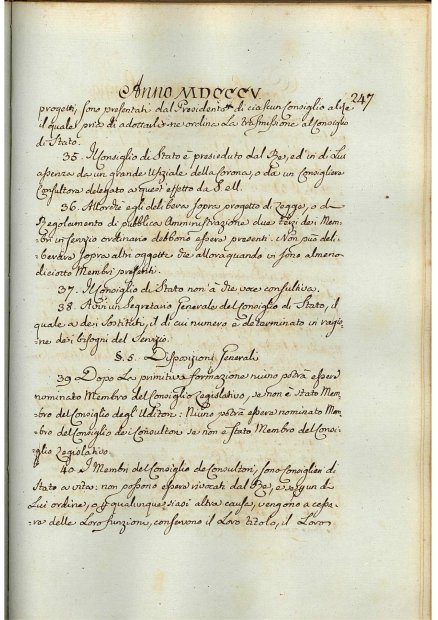 Anno MDCCCV
247
progetti, sono presentati dal Presidente di ciascun Consiglio al Re
il quale pria di adottarli ne ordina la trasmissione al Consiglio
di Stato.
35. Il Consiglio di Stato è presieduto dal Re, ed in di Lui
assenza da un grande Ufiziale della Corona, o da un Consigliere
Consultore delegato a quest'effetto da S. M.
36. Allorchè egli delibera sopra progetto di Legge, o di
Regolamento di pubblica Amministrazione due terzi dei Mem-
bri in servizio ordinario debbono essere presenti. Non può deli-
berare sopra altri oggetti che allora quando vi sono almeno
diciotto Membri presenti.
37. Il Consiglio di Stato non à che voce consultiva.
38. Avvi un Segretario Generale del Consiglio di Stato, il
quale a dei Sostituti, il di cui numero è determinato in ragio-
ne dei bisogni del Servizio.
§. 5. Disposizioni Generali.
39 Dopo la primitiva formazione niuno potrà essere
nominato Membro del Consiglio Legislativo, se non è stato Mem-
bro del Consiglio degl'Uditori: Niuno potrà essere nominato Mem-
bro del Consiglio dei Consultori se non è stato Membro del Consi-
glio Legislativo.
40. I Membri del Consiglio de Consultori, sono Consiglieri di
Stato a vita: non possono essere rivocati dal Re, e se per un di
Lui ordine, o per qualunque siasi altra causa, vengono a cessa-
re dalle Loro funzioni, conservano il Loro titolo, il Loro